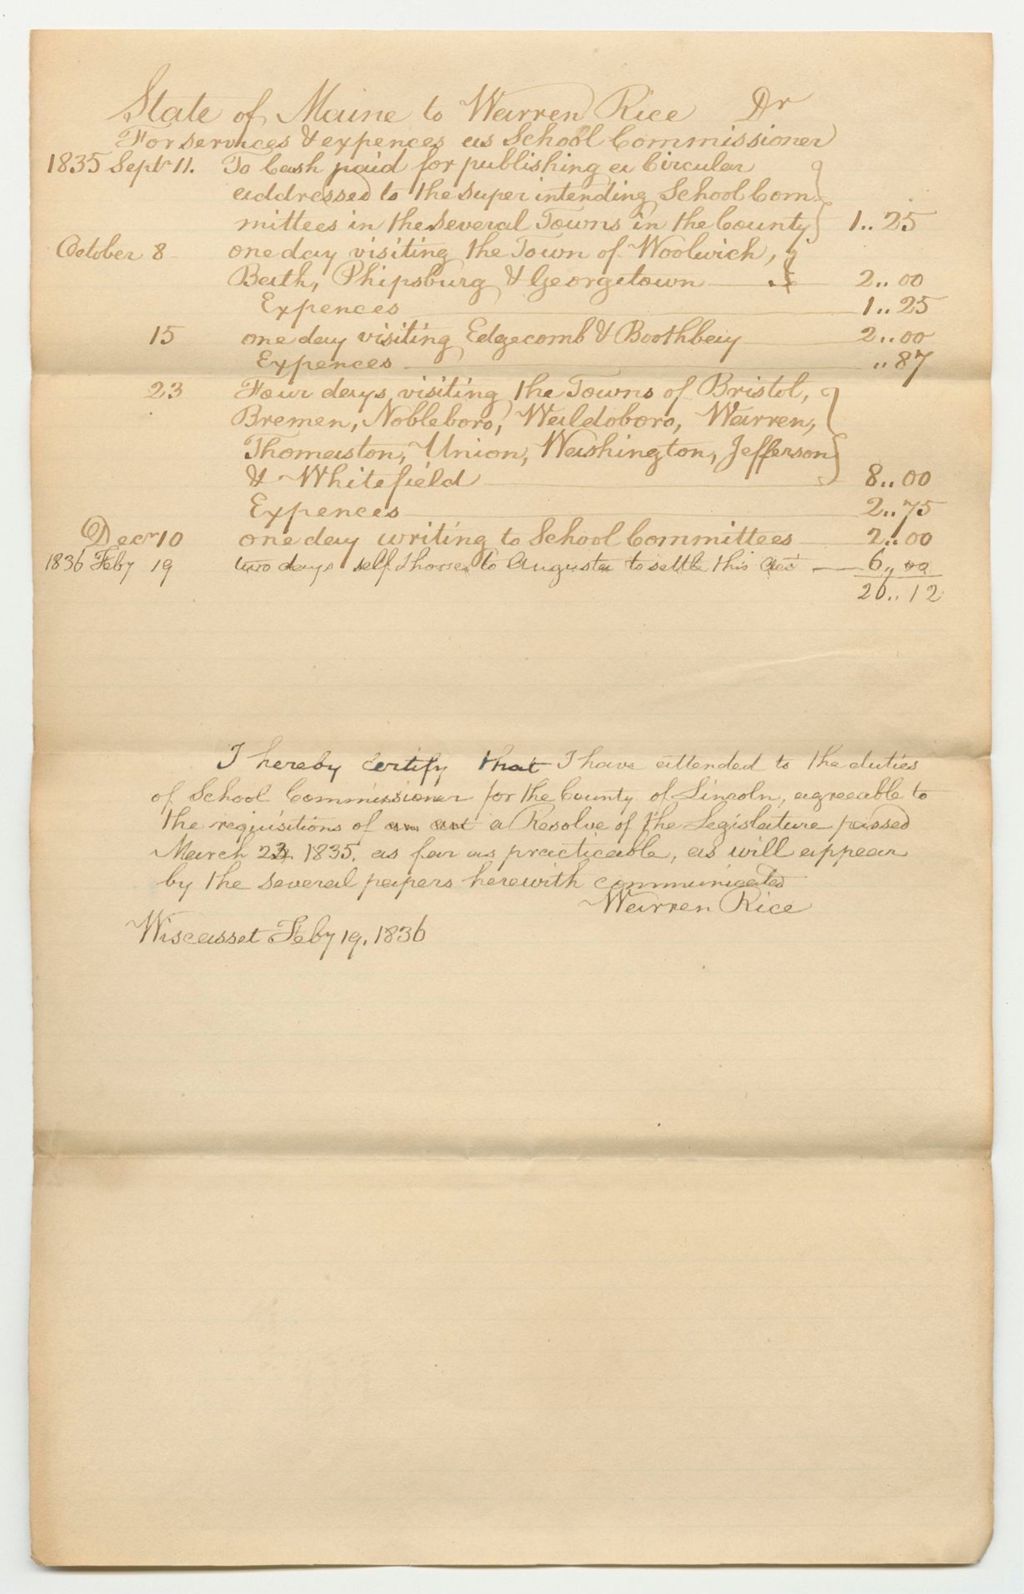 State of Maine to Warren Rice Dr
For services & expences as School Commissioner
1835 Sept 11. To Cash paid for publishing a Circular
addressed to the super intending School Com-
mittees in the several Towns in the County 1..25
October 8 one day visiting the Town of Woolwich,
Bath, Phipsburg & Georgetown 2..00
Expences 1..25
15 one day visiting Edgecomb & Boothbay 2..00
Expences ..87
23 Four days visiting the Towns of Bristol,
Bremen, Nobleboro, Waldoboro, Warren,
Thomaston, Union, Washington, Jefferson
& Whitefield 8..00
Expences 2..75
Decr 10 one day writing to School Committees 2..00
1836 Feby 19 two days self & horse to Augusta to settle this act 6..00
26..12
I hereby certify that I have attended to the duties
of School Commissioner for the County of Lincoln, agreeable to
the requisitions of an act a Resolve of the Legislature passed
March 24 1835. as far as practicable, as will appear
by the several papers herewith communicated
Warren Rice
Wiscasset Feby 19, 1836